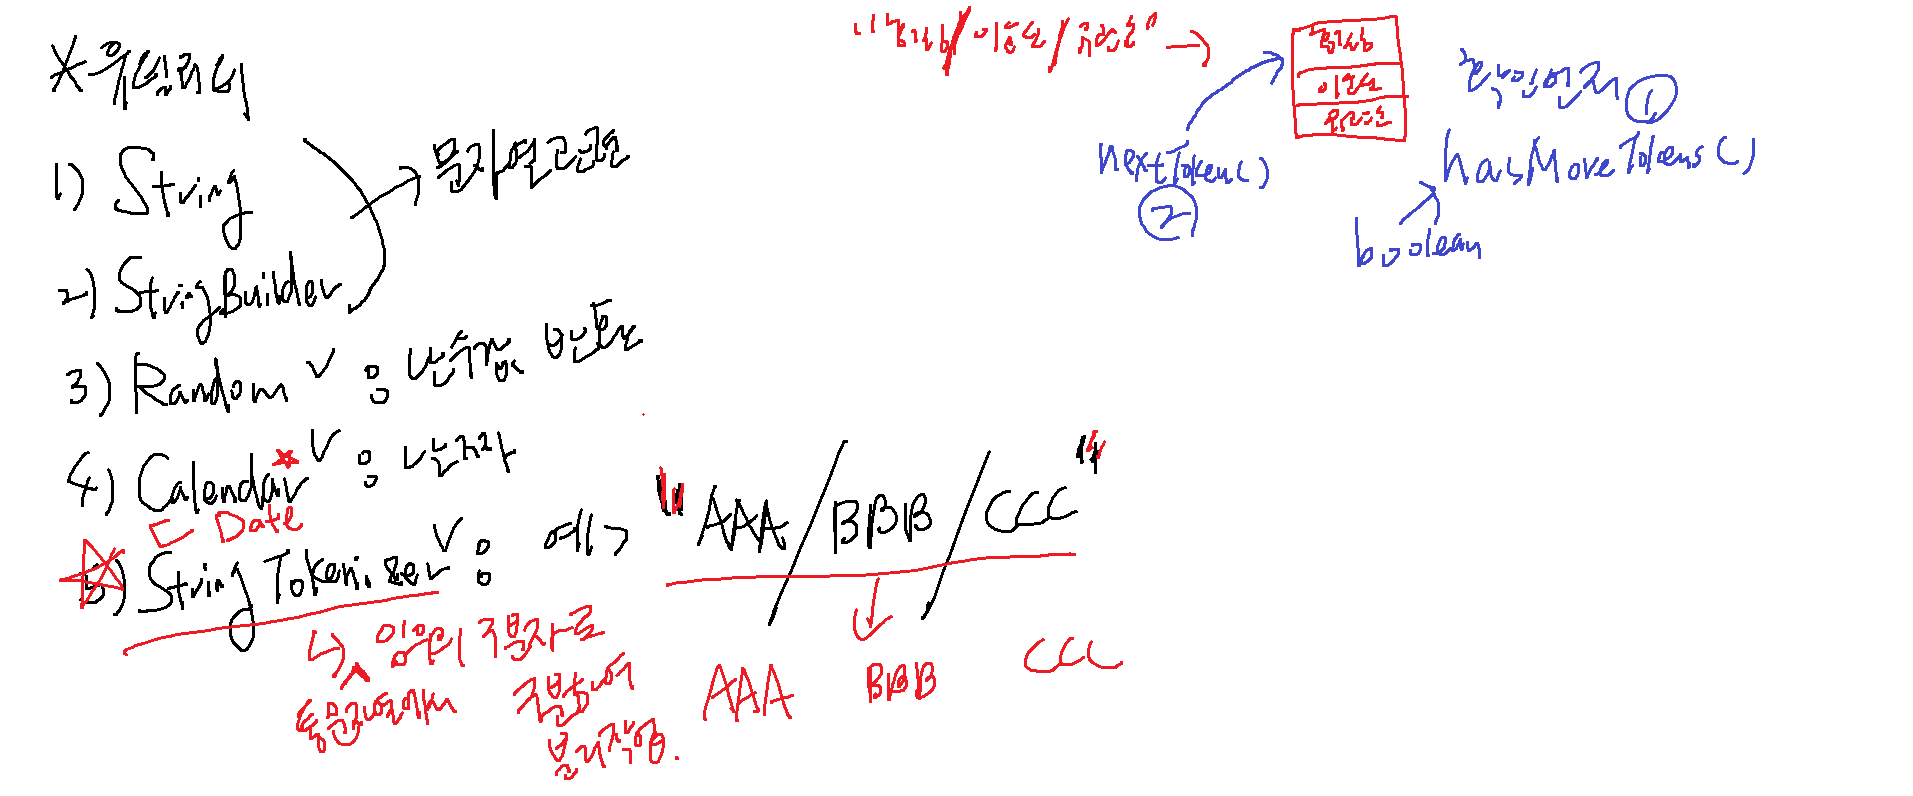 *유틸리티
1) String
2) StringBuilder
→ 문자열관련
3) Random ∨ : 난수값 반환
4) Calendar ∨ : 날짜
Date
5) StringTokenizer ∨ : 예> "AAA/BBB/CCC"
↳ 임의의 구분자로
통문자열에서 구분하여
분리작업.
AAA BBB CCC
nextToken()
②
확인먼저 ①
hasMoreTokens()
boolean